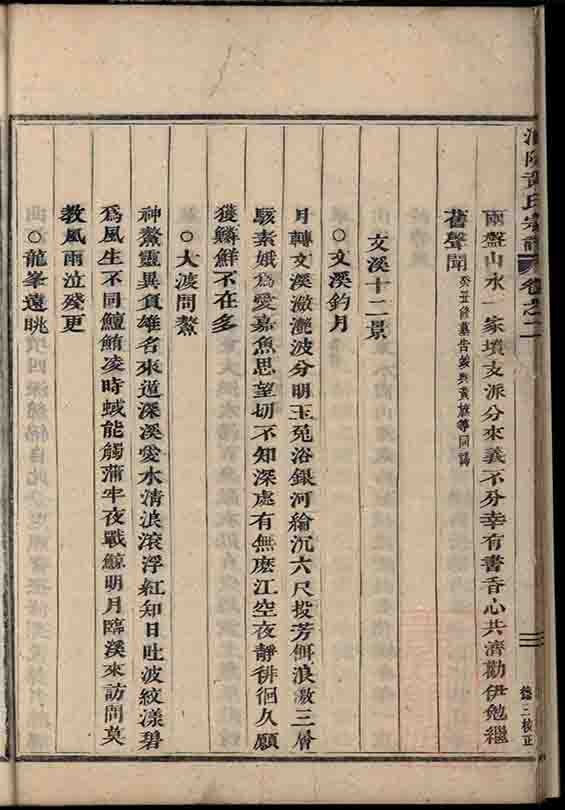 黃氏宗譜 卷之二
兩盤山水一家墳支派分來義不分幸有書香心共濟勸伊勉繼
舊聲聞
文溪十二景
○文溪釣月
月轉文溪瀲灧波分明玉兔浴銀河綸沉六尺投芳餌浪激三層
駭素娥為愛嘉魚思望切不知深處有無麼江空夜靜徘徊久願
獲鱗鮮不在多
○大渡問鰲
神鰲靈異負雄名來遊深溪愛水清浪滾浮紅知日吐波紋漾碧
為風生不同鱣鮪凌時蜮能觸蒲牢夜戰鯨明月臨溪來訪問莫
教風雨泣殘更
○龍峯遠眺
三
錄三校正